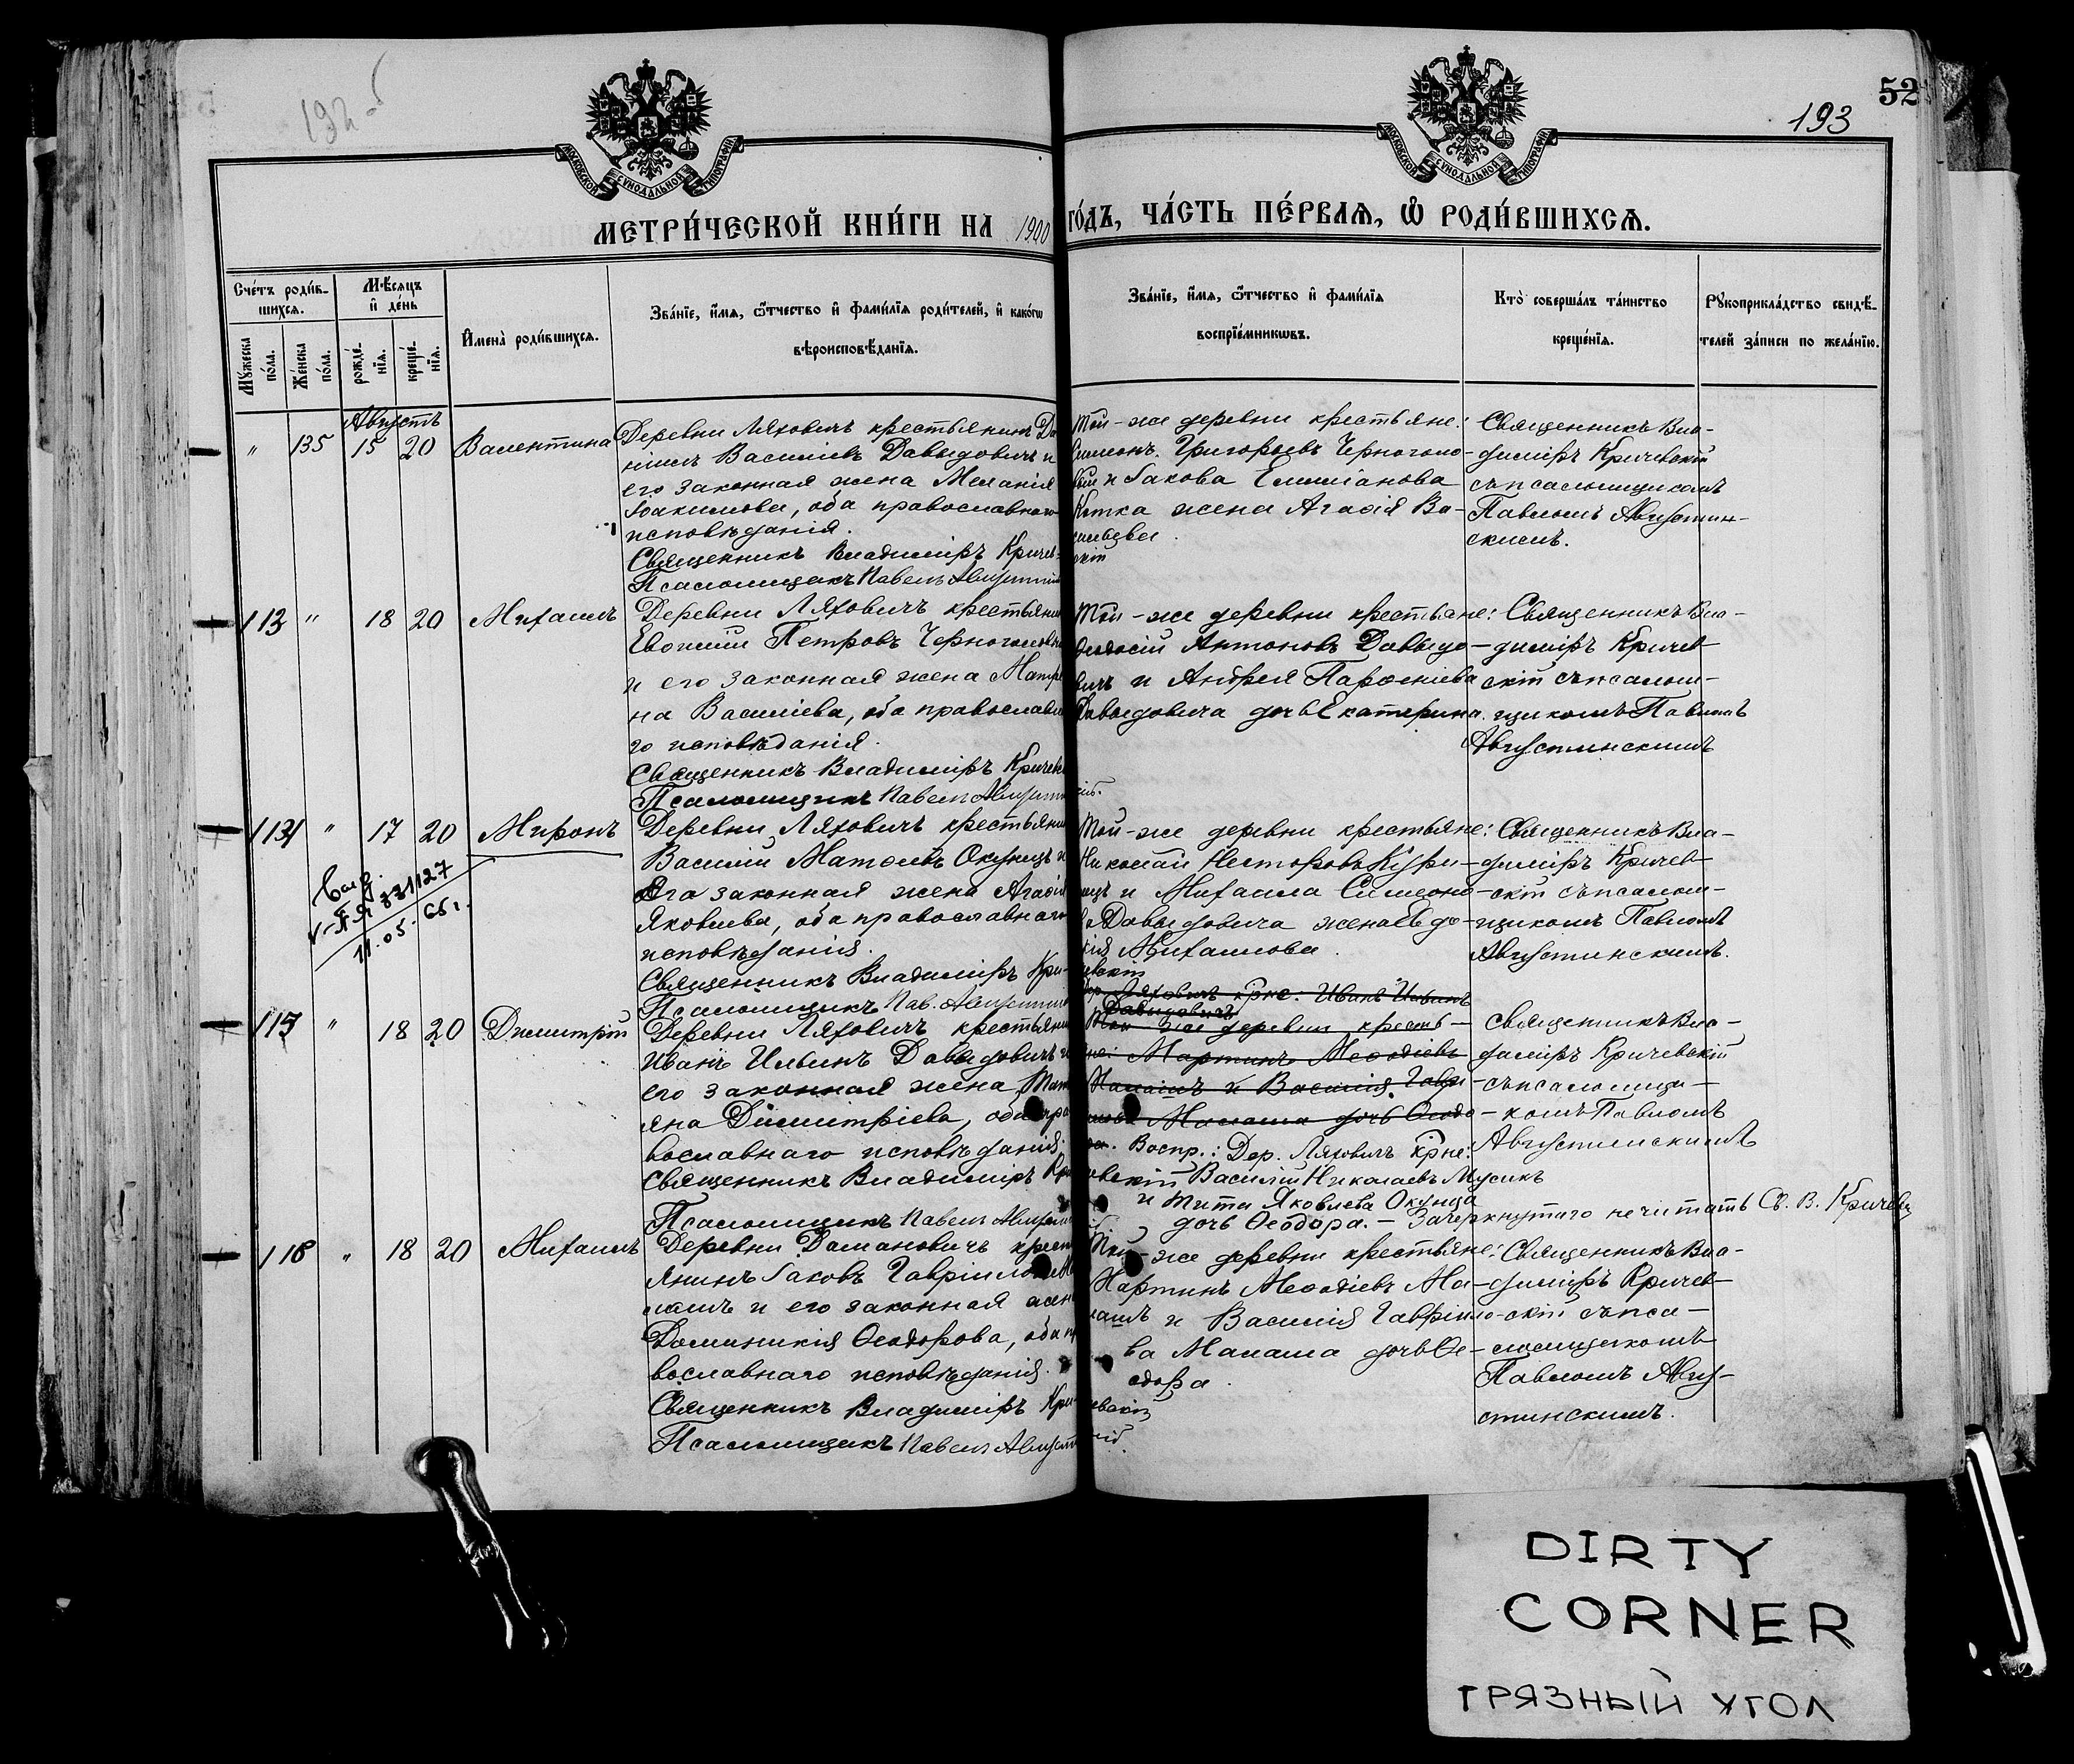 192 об
52
193
МОСКОВСКОЙ СѴНОДАЛЬНОЙ ТИПОГРАФІИ
МОСКОВСКОЙ СѴНОДАЛЬНОЙ ТИПОГРАФІИ
МЕТРИ́ЧЕСКОЙ КНИ́ГИ НА 1900 ГО́ДЪ, ЧА́СТЬ ПЕ́РВАѦ, Ѽ РОДИ́ВШИХСѦ.
Сче́тъ роди́в-
шихсѧ.
Мꙋ́жеска по́ла.
Же́нска по́ла.
Мѣ́сѧцъ и҆ де́нь
рожде́-нїѧ.
креще́-нїѧ.
И҆мена̀ роди́вшихсѧ.
Зва́нїе, и҆́мѧ, ѻ҆́тчество и҆ фами́лїѧ роди́телей, и҆ како́гѡ
вѣроисповѣ́данїѧ.
Зва́нїе, и҆́мѧ, ѻ҆́тчество и҆ фами́лїѧ
воспрїе́мникѡвъ.
Кто̀ соверша́лъ та́инство
креще́нїѧ.
Рꙋкоприкла́дство свидѣ́-
телей за́писи по жела́нїю.
Августъ
" 135 15 20 Валентина
Деревни Ляховичъ крестьянинъ Да
ніилъ Василіевъ Давыдовичъ и
его законная жена Меланія
Іоакимова, оба православнаго
исповѣданія.
Священникъ Владиміръ Кричев-
скій
Псаломщикъ Павелъ Августин
Той-же деревни крестьяне:
Симеонъ Григорьевъ Черноголо-
вый и Іакова Емиліанова
Котка жена Агаѳія Ва-
сильева.
Священникъ Вла-
диміръ Кричевскій
съ псаломщикомъ
Павломъ Августин-
скимъ.
113 " 18 20 Михаилъ
Деревни Ляховичъ крестьянин
Евѳимій Петровъ Черноголов
и его законная жена Матре
на Василіева, оба православна
го исповѣданія.
Священникъ Владиміръ Кричевс
Псаломщикъ Павелъ Августин
Той-же деревни крестьяне:
Ѳеодосій Антоновъ Давыдо-
вичъ и Андрея Парѳеніева
Давыдовича дочь Екатерина.
Священникъ Вла-
диміръ Кричев-
скій съ псалом-
щикомъ Павломъ
Августинскимъ
114 " 17 20 Миронъ
Выд.
V-ПЯ 331127
11.05.65 г.
Деревни Ляховичъ крестьянин
Василій Матѳеевъ Окунецъ и
его законная жена Агаѳія
Яковлева, оба православнаго
исповѣданія.
Священникъ Владиміръ Кри-
чевскій
Псаломщикъ Пав. Августин
Той-же деревни крестьяне:
Николай Несторовъ Кури-
ецъ и Михаила Симеоно-
ва Давыдовича жена Евдо-
кія Михаилова.
Священникъ Вла-
диміръ Кричев-
скій съ псалом-
щикомъ Павломъ
Августинскимъ.
115 " 18 20 Димитрій
Деревни Ляховичъ крестьянин
Иванъ Ильинъ Давыдовичъ и
его законная жена Тат
яна Димитріева, оба пра
вославнаго исповѣданія.
Священникъ Владиміръ Кри
чевскій
Псаломщикъ Павелъ Августин
Дер. Ляховичъ кр‑не: Иванъ Ильинъ
Давыдовичъ
Той же деревни кресть-
яне: Мартинъ Меѳодіевъ
Малашъ и Василія Гаври-
лова Малаша дочь Ѳеодо-
ра. Воспр.: Дер. Ляховичъ кр‑не:
Василій Николаевъ Мусикъ
и Тита Яковлева Окунца
дочь Ѳеодора. – Зачеркнутаго не читать Св. В. Кричевск
Священникъ Вла-
диміръ Кричевскій
съ псаломщи-
комъ Павломъ
Августинскимъ
116 " 18 20 Михаилъ
Деревни Дамановичъ крест
янинъ Іаковъ Гавріиловъ Ма
лашъ и его законная жена
Доминикія Ѳеодорова, оба п
вославнаго исповѣданія.
Священникъ Владиміръ Кри-
чевскій
Псаломщикъ Павелъ Августин
Той-же деревни крестьяне:
Мартинъ Меѳодіевъ Ма-
лашъ и Василія Гавріило-
ва Малаша дочь Ѳе-
одора.
Священникъ Вла-
диміръ Кричев-
скій съ пса-
ломщикомъ
Павломъ Авгу-
стинскимъ.
DIRTY
CORNER
ГРЯЗНЫЙ УГОЛ